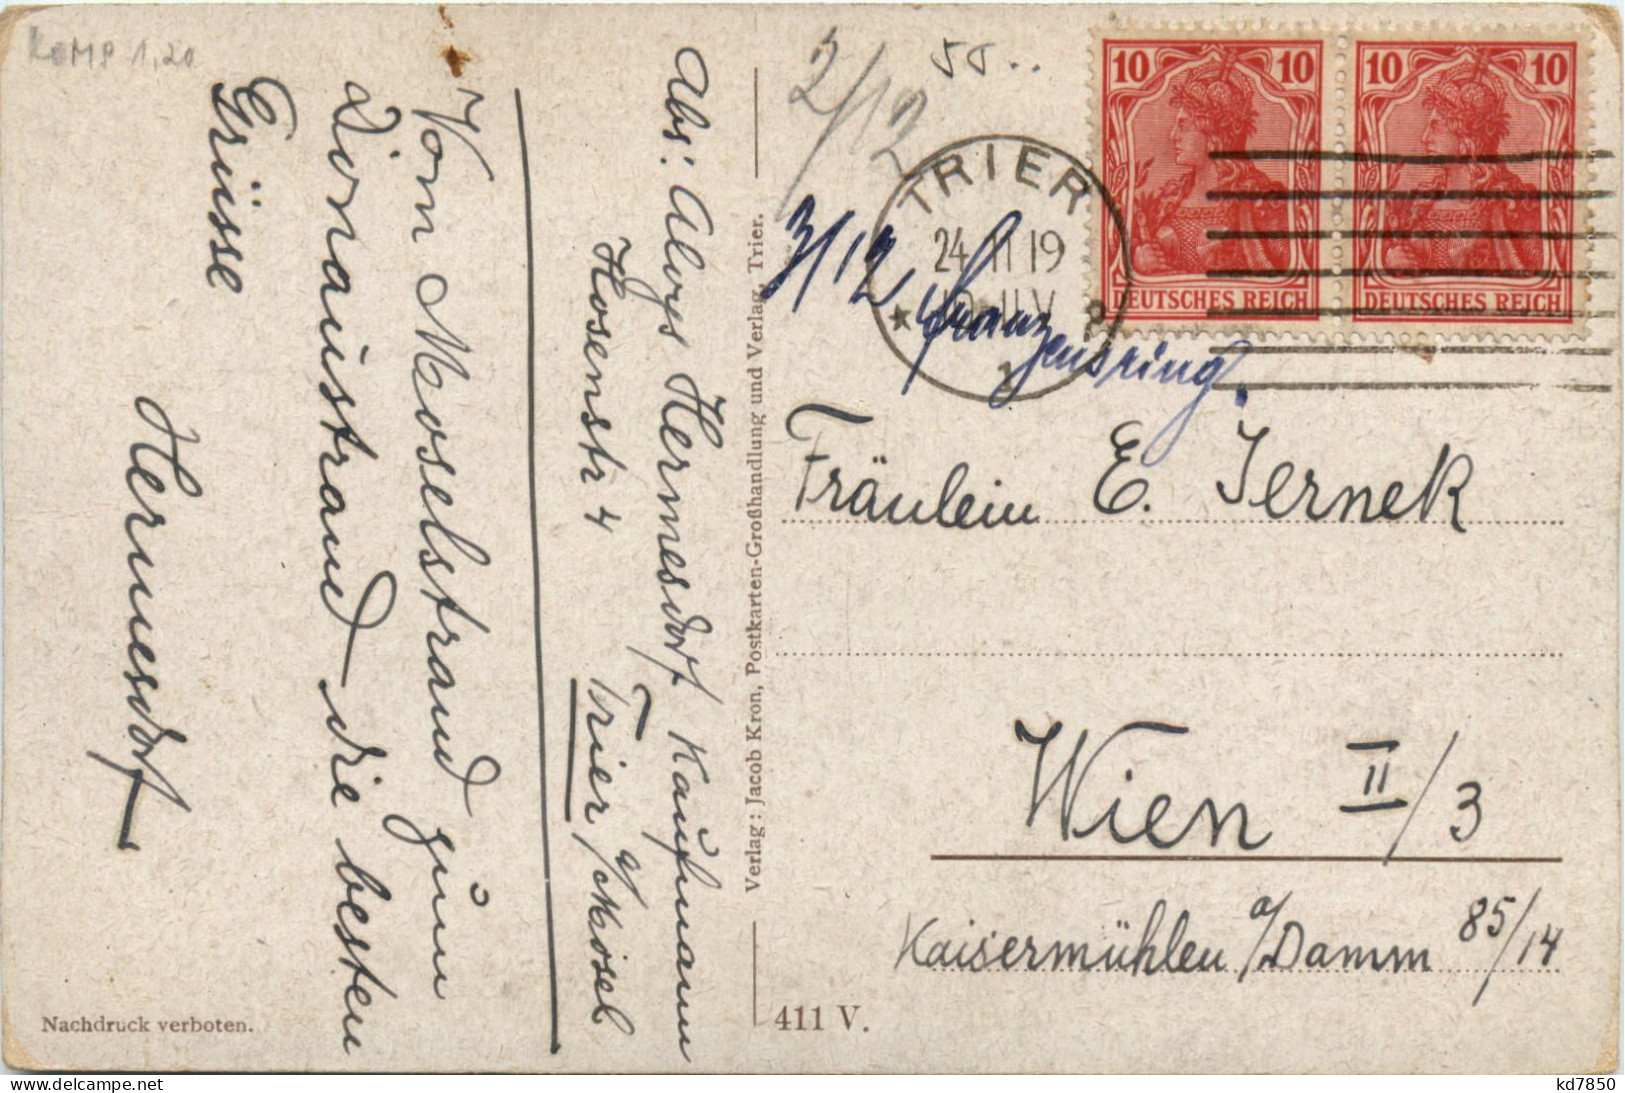 KOMP 1,20
Vom Moselstrand zum
Donaustrand die besten
Grüsse
Hermesdorf
Abs: Aloys Hermesdorf Kaufmann
Hosenstr 4
Trier a/Mosel
Nachdruck verboten.
Verlag: Jacob Kron, Postkarten-Großhandlung und Verlag, Trier.
411 V.
2/12
3/12
Franzensring.
TRIER
24.11 19
10-11V
10 10
DEUTSCHES REICH
10 10
DEUTSCHES REICH
Fräulein E. Jernek
Wien II/3
Kaisermühlen a/Damm 85/14
kd7850